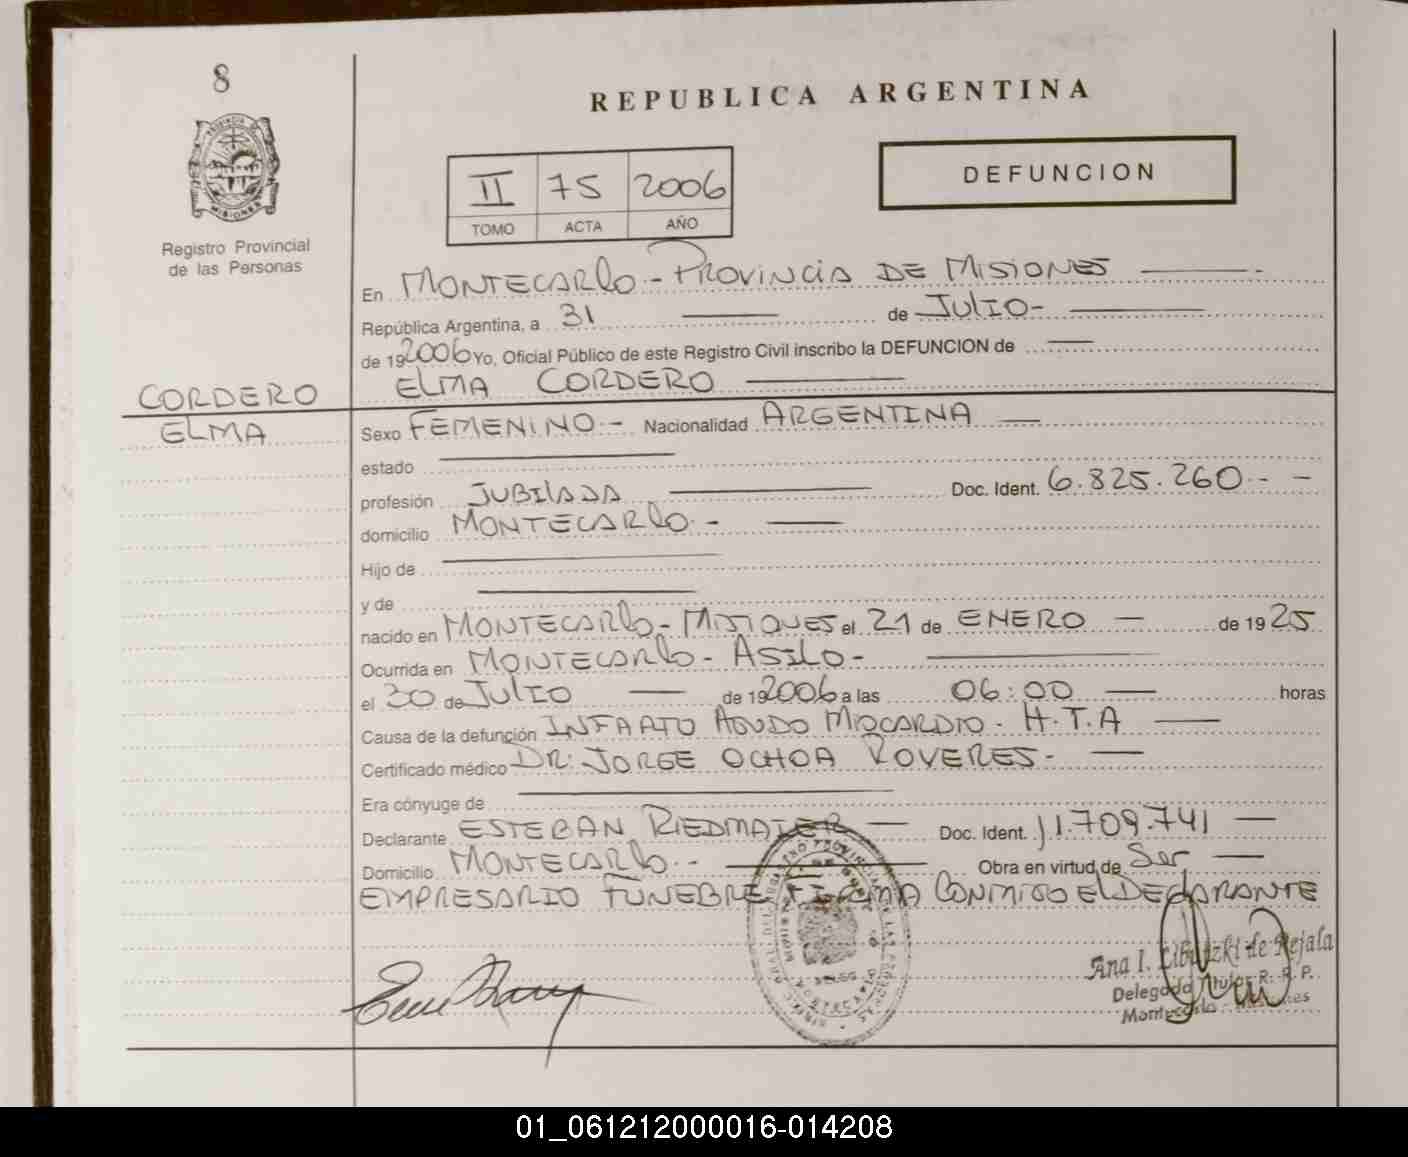 8
REPUBLICA ARGENTINA
DEFUNCION
II 75 2006
TOMO ACTA AÑO
PROVINCIA DE
MISIONES
Registro Provincial
de las Personas
En MONTECARLO - PROVINCIA DE MISIONES
República Argentina, a 31 de JULIO-
de 192006 Yo, Oficial Público de este Registro Civil inscribo la DEFUNCION de
ELMA CORDERO
CORDERO
ELMA
Sexo FEMENINO.- Nacionalidad ARGENTINA
estado
profesión JUBILADA Doc. Ident. 6.825.260.-
domicilio MONTECARLO.-
Hijo de
y de
nacido en MONTECARLO - MISIONES el 21 de ENERO de 1925
Ocurrida en MONTECARLO - ASILO -
el 30 de JULIO de 192006 a las 06:00 horas
Causa de la defunción INFARTO AGUDO MIOCARDIO. H.T.A
Certificado médico DR: JORGE OCHOA ROVERES.-
Era cónyuge de
Declarante ESTEBAN RIEDMAIER Doc. Ident. 11.709.741
Domicilio MONTECARLO.- Obra en virtud de Ser
EMPRESARIO FUNEBRE FIRMA CONMIGO EL DECLARANTE
Ana I. de Rejala
Delegada Titular R. P. P.
Montecarlo - Misiones
01_061212000016-014208